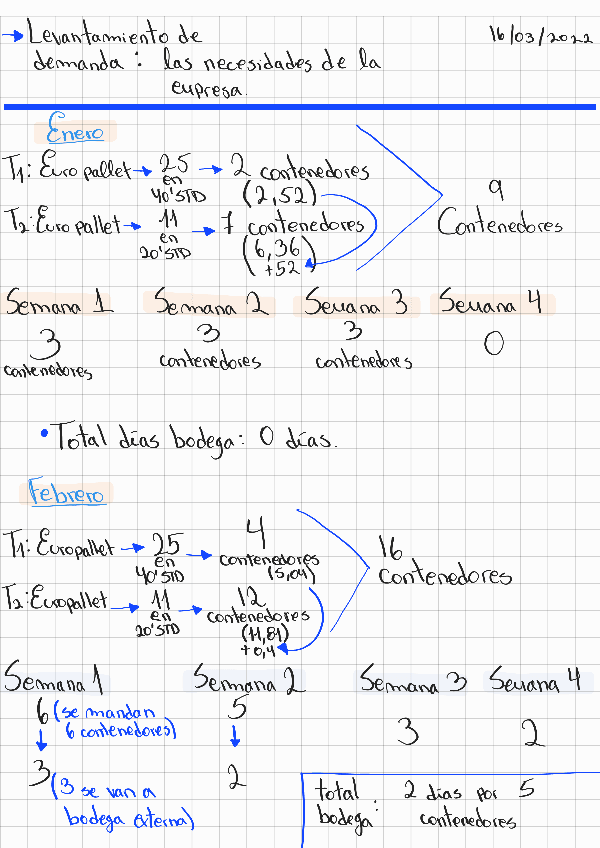 → Levantamiento de
16/03/2022
demanda: las necesidades de la
empresa.
Enero
T1: Euro pallet → 25 → 2 contenedores
en
40'STD (2,52)
T2: Euro pallet → 11 → 7 contenedores
en
20'STD (6,36)
+52
9
Contenedores
Semana 1 Semana 2 Semana 3 Semana 4
3 3 3 0
contenedores contenedores contenedores
• Total días bodega: 0 días.
Febrero
T1: Europallet → 25 → 4
en contenedores
40'STD (5,04)
T2: Europallet → 11 → 12
en contenedores
20'STD (11,81)
+0,4
16
contenedores
Semana 1 Semana 2 Semana 3 Semana 4
6 (se mandan 5 3 2
6 contenedores)
↓ ↓
3 (3 se van a 2
bodega externa)
total : 2 dias por 5
bodega contenedores